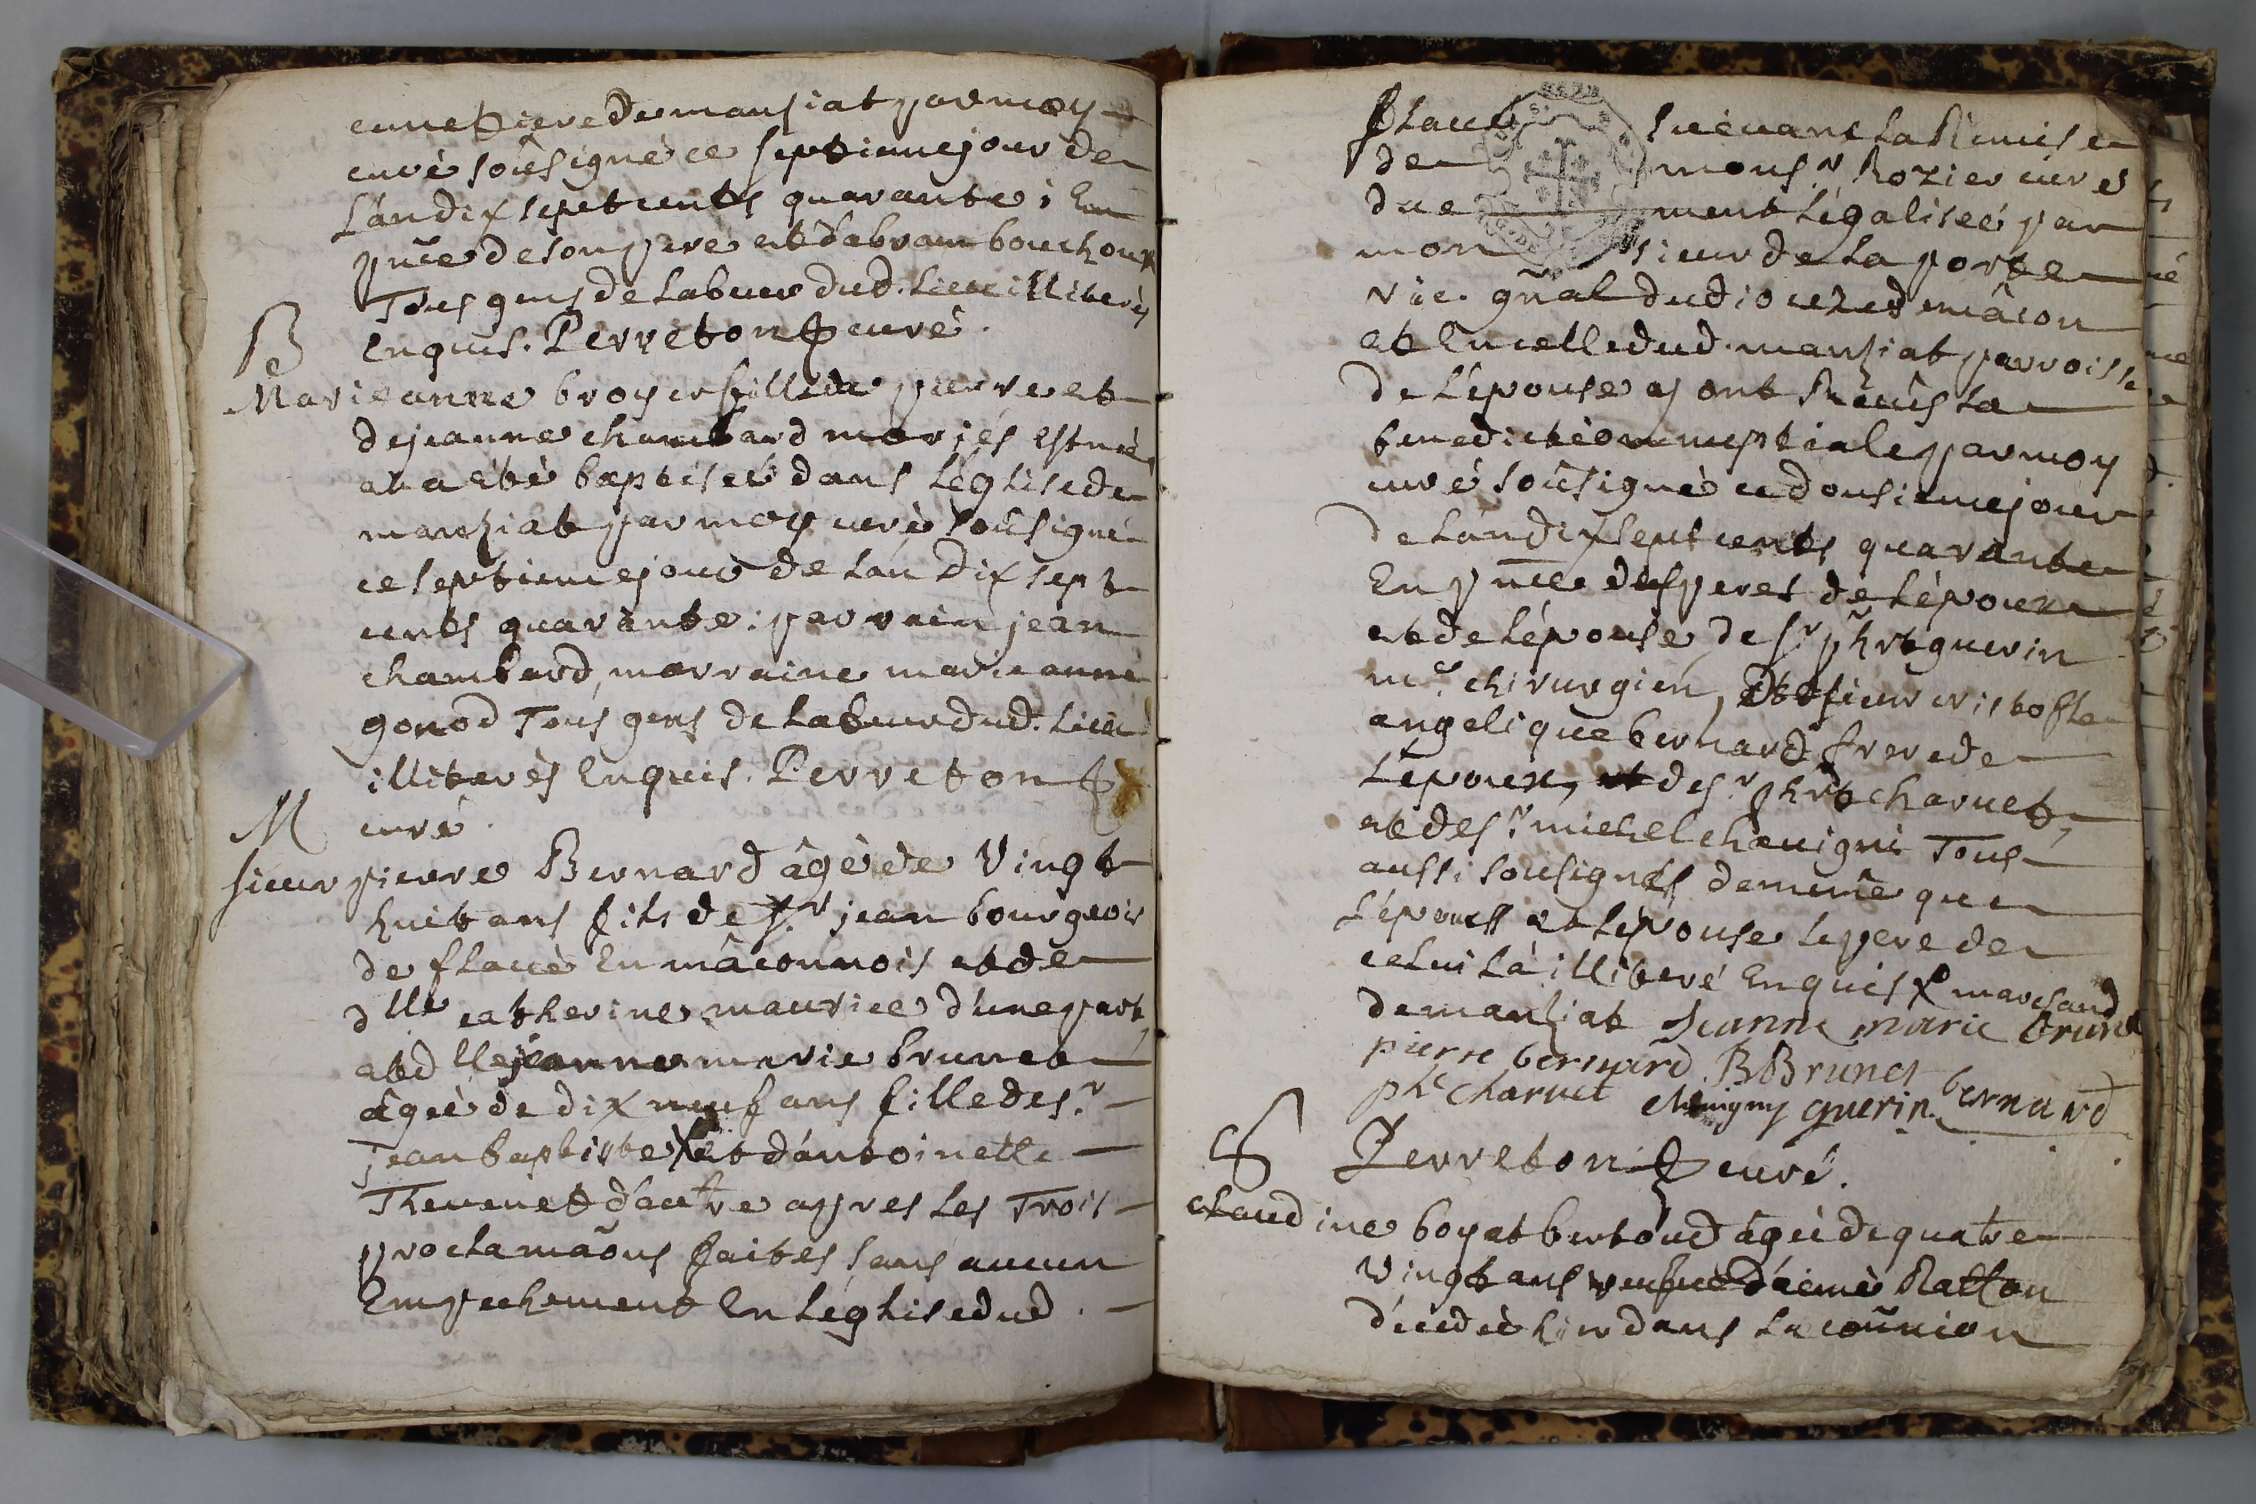 cimetiere de manziat par moy
curé soûsigné ce septieme jour de
L'an dix sept cents quarante; En
pñce de son pere et d'abram bouchoux
Tous gens de Labeur dud. Lieu illiterés
Enquis. Perreton curé.
B
Marieanne broyer fille de pierre et
de jeanne chambard mariés est née
et a été baptisée dans L'église de
manziat par moy curé soûsigné
ce septieme jour de L'an dix sept
cents quarante: parrain jean
chambard, marraine marieanne
gonod Tous gens de Labeur dud. Lieu
illiterés Enquis. Perreton
curé.
M
sieur pierre Bernard âgé de Vingt
huit ans fils de sr. jean bourgeois
de flacé En mâconnois et de
dlle catherine maurice d'une part,
et dlle jeanne marie brunet
âgée de dix neuf ans fille de sr.
jean baptiste X et d'antoinette
Thevenet d'autre apres Les Trois
proclamãons faites sans aucun
Empechement En L'église dud.
flacé suivant La Remise
de mons.r Rozier curé
due ment Légalisée par
mon sieur de La porte
vic. gñal du dioceze de mâcon
et En celle dud. manziat parroisse
de L'épouse ont Reçûs La
benediction nuptiale par moy
curé soûsigné ce dousieme jour
de L'an dix sept cents quarante
En pñce des peres de L'époux
et de L'épouse de sr. phrt guerin
me. chirurgien, et de sieur cristofle
angelique bernard frere de
L'époux, et de sr. phrt charvet,
et de sr. michel chevigni Tous
aussi soûsignés de même que
L'époux et L'épouse Le pere de
celui Là illiteré Enquis X marchand
de manziat Jeanne marie brunet
pierre bernard BBrunet
phe charvet chevigny guerin bernard
Perreton curé.
S
claudine boyat bertoud âgée de quatre
vingt ans veufve d'aimé Ratton
décedée hier dans La coñunion